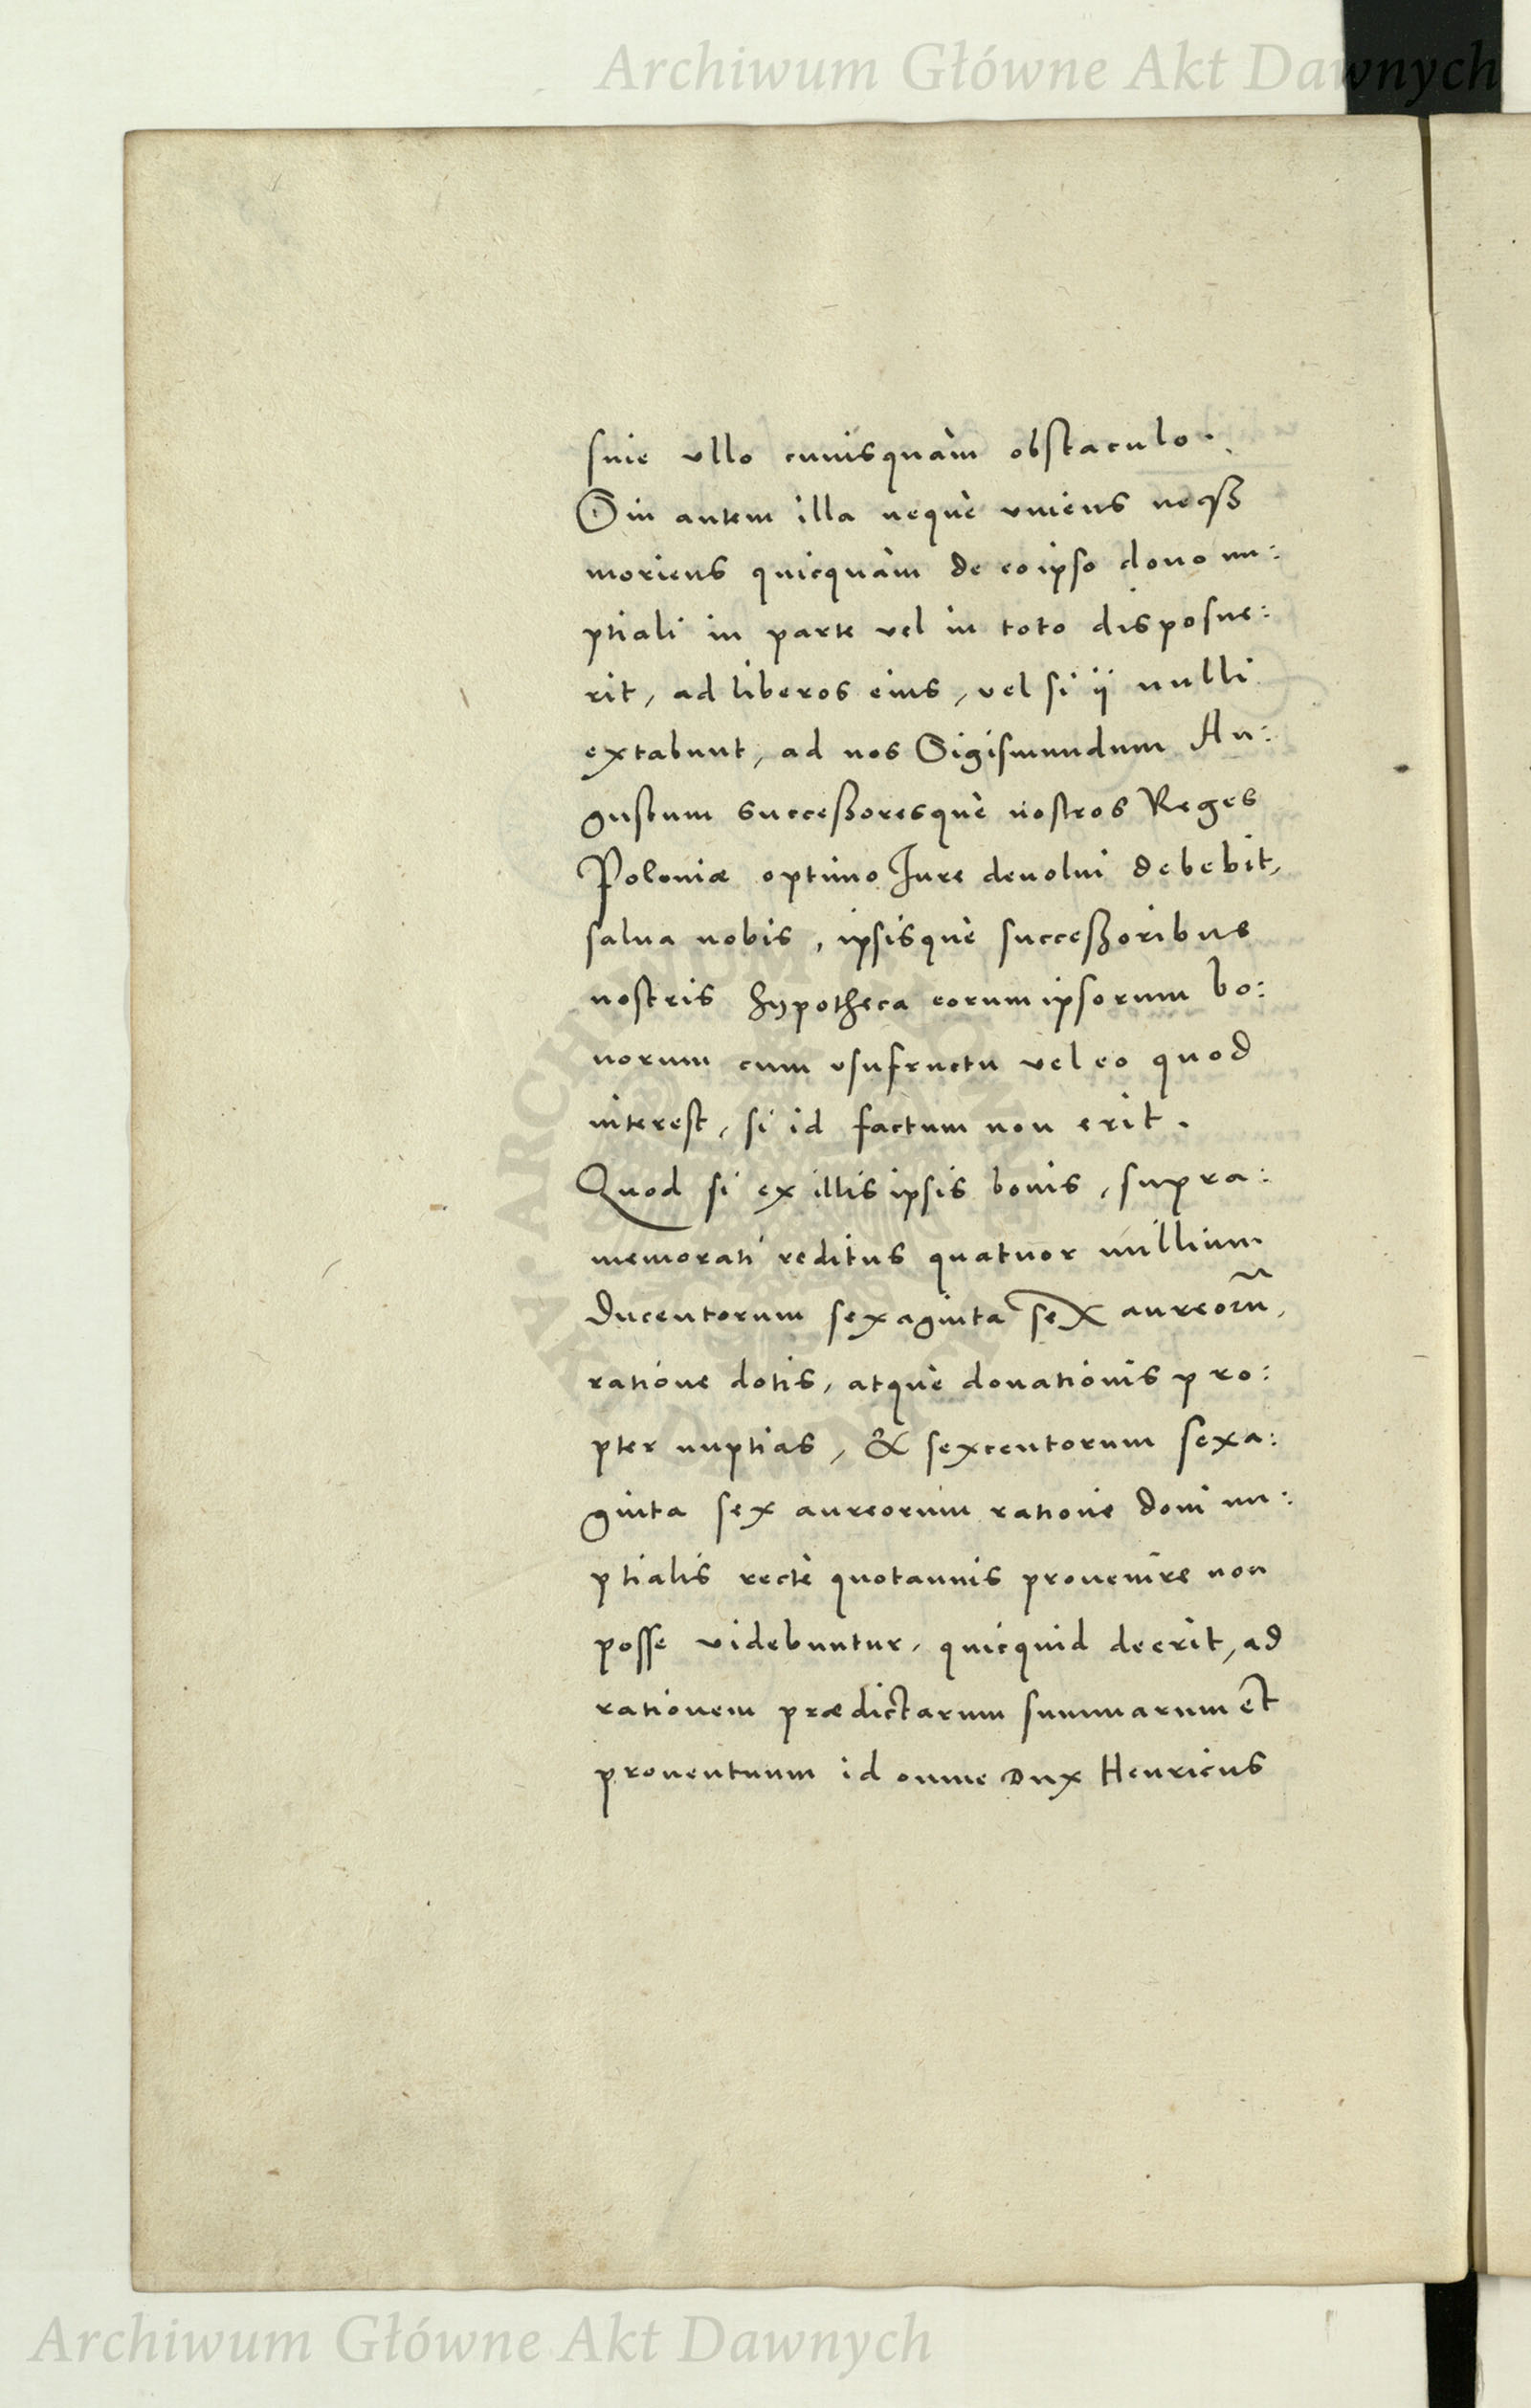 Archiwum Główne Akt Dawnych
sine vllo cuiusquàm obstaculo.
Sin autem illa nequè viuens neqꝫ
moriens quicquàm de eoipso dono nu:
ptiali in parte vel in toto disposue:
rit, ad liberos eius, vel si ij nulli
extabunt, ad nos Sigismundum Au:
gustum successoresquè nostros Reges
Poloniæ optimo Jure deuolui debebit,
salua nobis, ipsisquè successoribus
nostris hypotheca eorumipsorum bo:
norum cum vsufructu vel eo quod
interest, si id factum non erit.
Quod si ex illis ipsis bonis, supra:
memorati reditus quatuor millium
Ducentorum sexaginta sex aureorũ,
ratione dotis, atquè donationis pro:
pter nuptias, & sexcentorum sexa:
ginta sex aureorum ratione doni nu:
ptialis rectè quotannis prouenire non
posse videbuntur, quicquid deerit, ad
rationem prædictarum summarum et
prouentuum id omne Dux Henricus
ARCHIWUM GŁÓWNE AKT DAWNYCH
Archiwum Główne Akt Dawnych